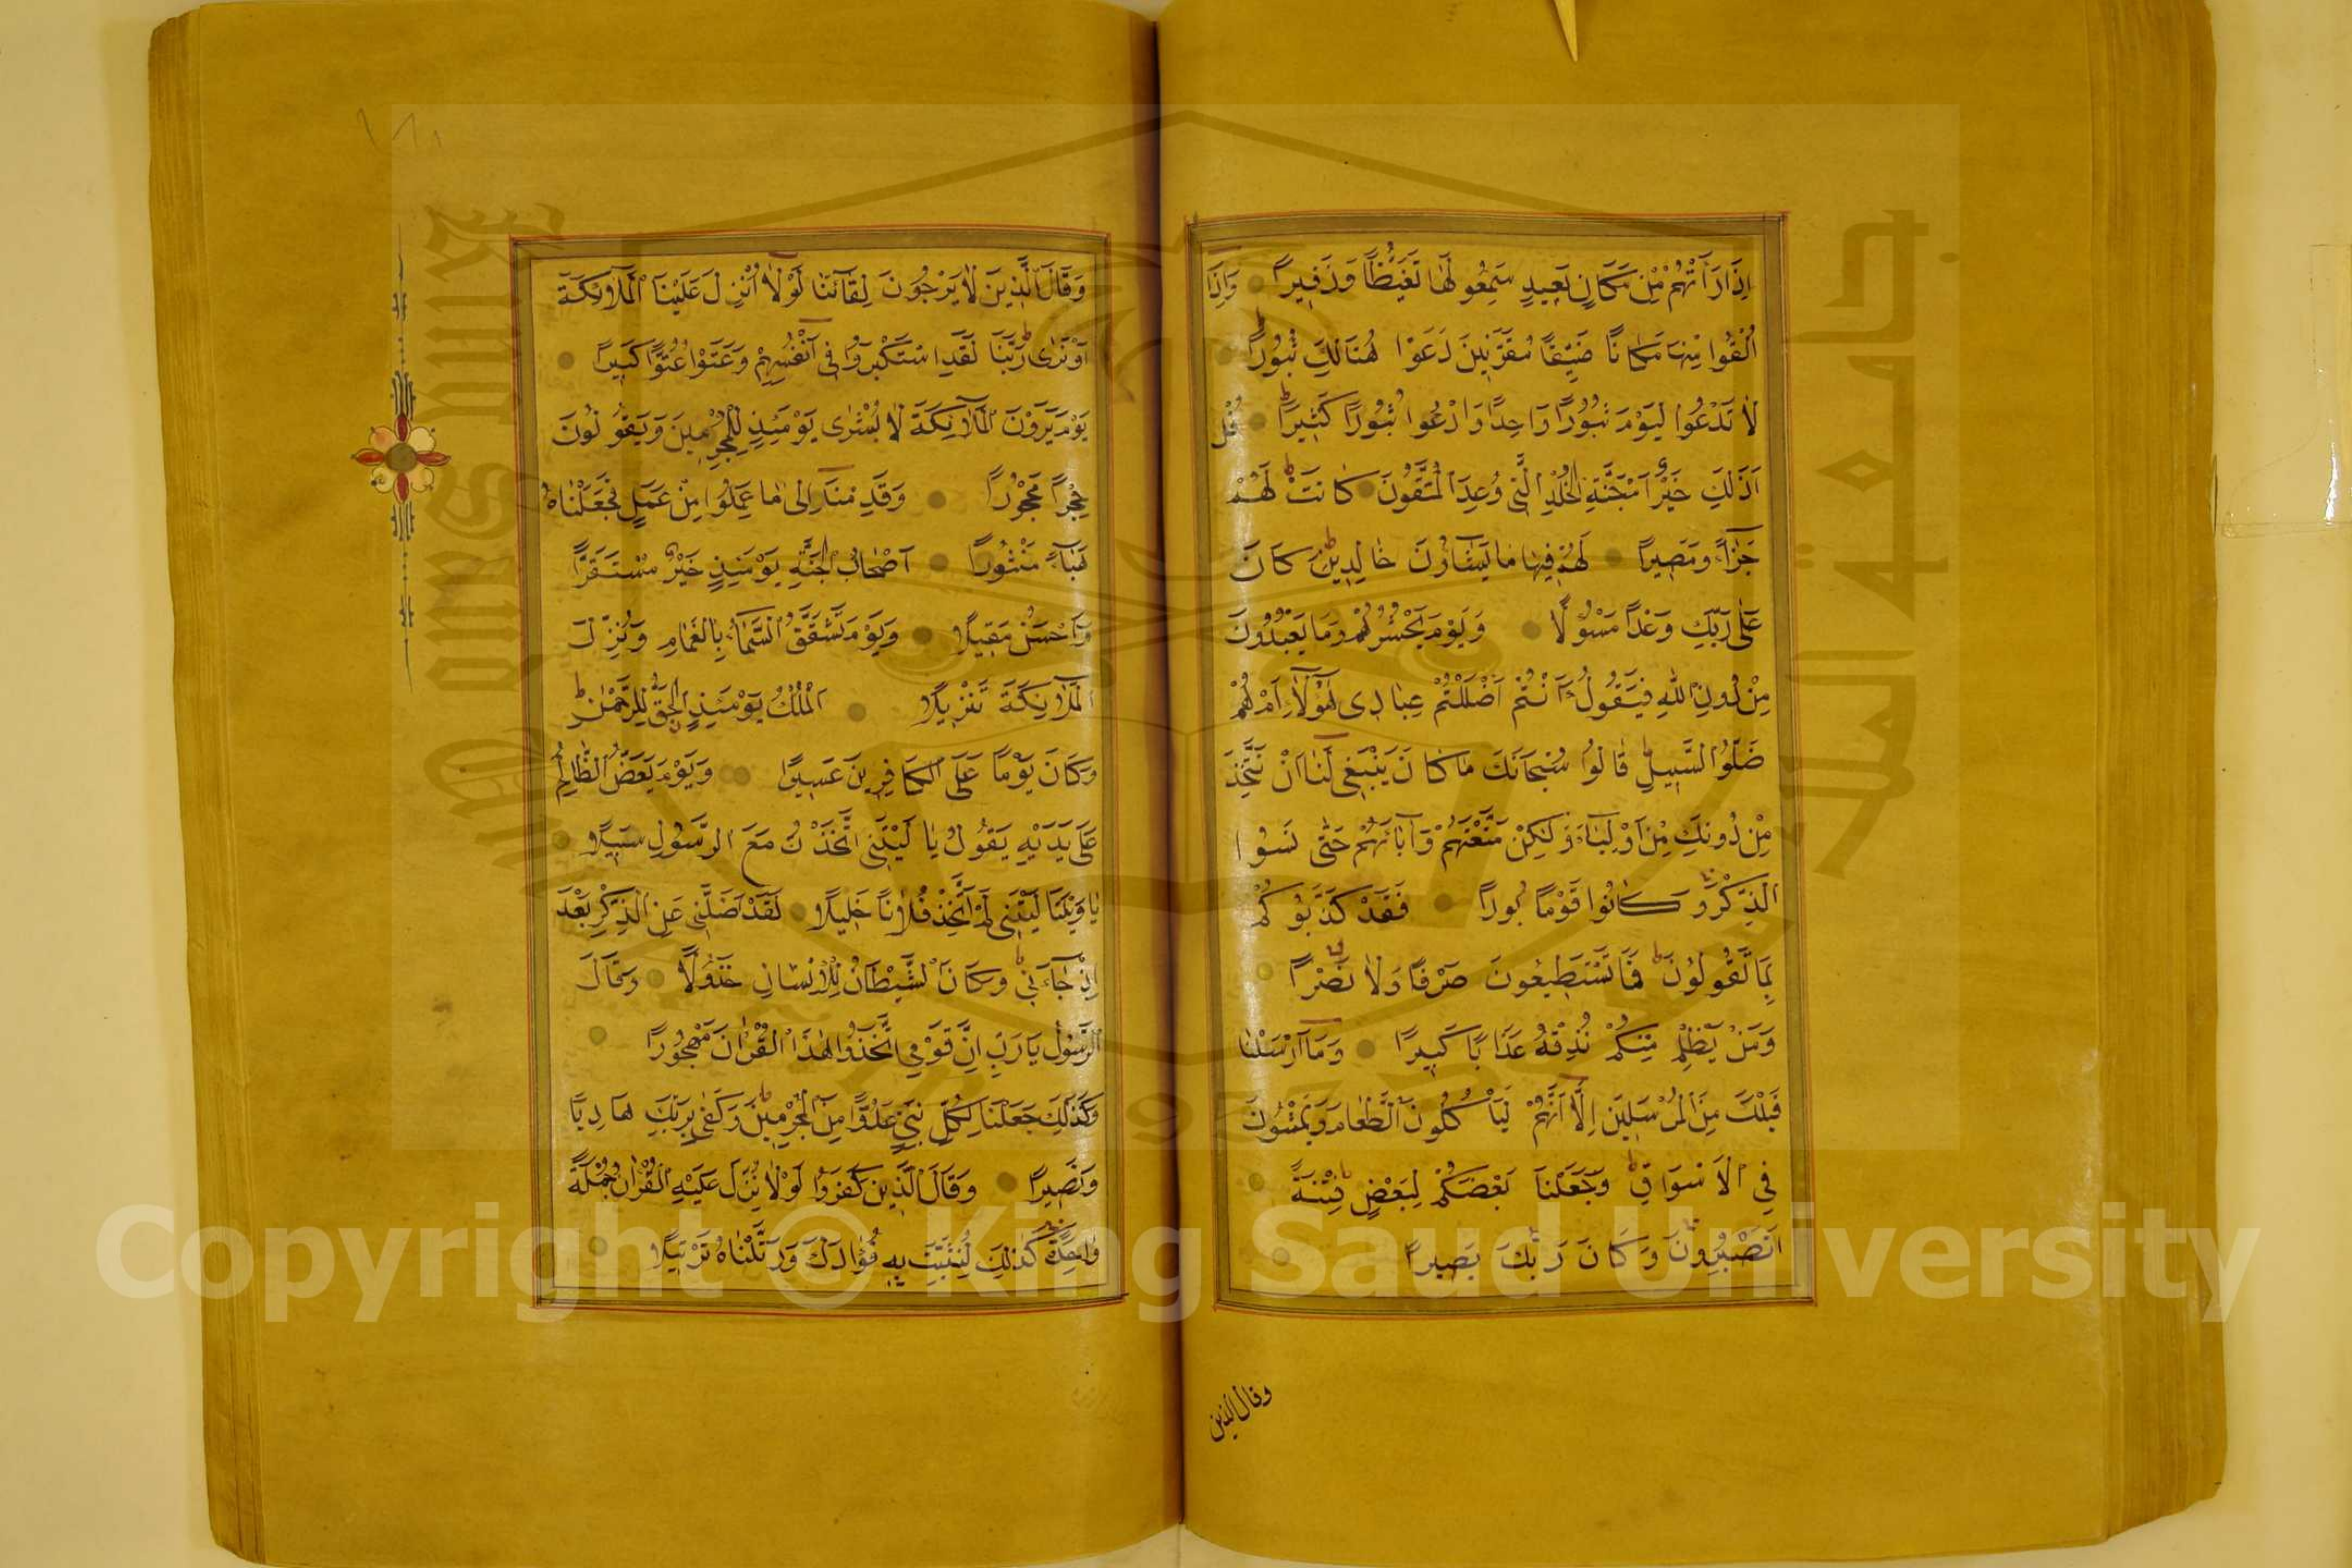 اِذَا رَاَتْهُمْ مِنْ مَكَانٍ بَعِيدٍ سَمِعُوا لَهَا تَغَيُّظًا وَزَفِيرًا وَاِذَا
اُلْقُوا مِنْهَا مَكَانًا ضَيِّقًا مُقَرَّنِينَ دَعَوْا هُنَالِكَ ثُبُورًا
لَا تَدْعُوا الْيَوْمَ ثُبُورًا وَاحِدًا وَادْعُوا ثُبُورًا كَثِيرًا قُلْ
اَذٰلِكَ خَيْرٌ اَمْ جَنَّةُ الْخُلْدِ الَّتِي وُعِدَ الْمُتَّقُونَ كَانَتْ لَهُمْ
جَزَاءً وَمَصِيرًا لَهُمْ فِيهَا مَا يَشَاؤُنَ خَالِدِينَ كَانَ
عَلٰى رَبِّكَ وَعْدًا مَسْؤُلًا وَيَوْمَ يَحْشُرُهُمْ وَمَا يَعْبُدُونَ
مِنْ دُونِ اللهِ فَيَقُولُ ءَاَنْتُمْ اَضْلَلْتُمْ عِبَادِى هٰؤُلَاءِ اَمْ هُمْ
ضَلُّوا السَّبِيلَ قَالُوا سُبْحَانَكَ مَا كَانَ يَنْبَغِى لَنَا اَنْ نَتَّخِذَ
مِنْ دُونِكَ مِنْ اَوْلِيَاءَ وَلٰكِنْ مَتَّعْتَهُمْ وَاٰبَاءَهُمْ حَتّٰى نَسُوا
الذِّكْرَ وَكَانُوا قَوْمًا بُورًا فَقَدْ كَذَّبُوكُمْ
بِمَا تَقُولُونَ فَمَا تَسْتَطِيعُونَ صَرْفًا وَلَا نَصْرًا
وَمَنْ يَظْلِمْ مِنْكُمْ نُذِقْهُ عَذَابًا كَبِيرًا وَمَا اَرْسَلْنَا
قَبْلَكَ مِنَ الْمُرْسَلِينَ اِلَّا اَنَّهُمْ لَيَاْكُلُونَ الطَّعَامَ وَيَمْشُونَ
فِي الْاَسْوَاقِ وَجَعَلْنَا بَعْضَكُمْ لِبَعْضٍ فِتْنَةً
اَتَصْبِرُونَ وَكَانَ رَبُّكَ بَصِيرًا
وقال الذين
١٨١
وَقَالَ الَّذِينَ لَا يَرْجُونَ لِقَاءَنَا لَوْلَا اُنْزِلَ عَلَيْنَا الْمَلَائِكَةُ
اَوْ نَرٰى رَبَّنَا لَقَدِ اسْتَكْبَرُوا فِى اَنْفُسِهِمْ وَعَتَوْا عُتُوًّا كَبِيرًا
يَوْمَ يَرَوْنَ الْمَلَائِكَةَ لَا بُشْرٰى يَوْمَئِذٍ لِلْمُجْرِمِينَ وَيَقُولُونَ
حِجْرًا مَحْجُورًا وَقَدِمْنَا اِلٰى مَا عَمِلُوا مِنْ عَمَلٍ فَجَعَلْنَاهُ
هَبَاءً مَنْثُورًا اَصْحَابُ الْجَنَّةِ يَوْمَئِذٍ خَيْرٌ مُسْتَقَرًّا
وَاَحْسَنُ مَقِيلًا وَيَوْمَ تَشَقَّقُ السَّمَاءُ بِالْغَمَامِ وَنُزِّلَ
الْمَلَائِكَةُ تَنْزِيلًا اَلْمُلْكُ يَوْمَئِذٍ الْحَقُّ لِلرَّحْمٰنِ
وَكَانَ يَوْمًا عَلَى الْكَافِرِينَ عَسِيرًا وَيَوْمَ يَعَضُّ الظَّالِمُ
عَلٰى يَدَيْهِ يَقُولُ يَا لَيْتَنِى اتَّخَذْتُ مَعَ الرَّسُولِ سَبِيلًا
يَا وَيْلَتَا لَيْتَنِى لَمْ اَتَّخِذْ فُلَانًا خَلِيلًا لَقَدْ اَضَلَّنِى عَنِ الذِّكْرِ بَعْدَ
اِذْ جَاءَنِى وَكَانَ الشَّيْطَانُ لِلْاِنْسَانِ خَذُولًا وَقَالَ
الرَّسُولُ يَا رَبِّ اِنَّ قَوْمِى اتَّخَذُوا هٰذَا الْقُرْاٰنَ مَهْجُورًا
وَكَذٰلِكَ جَعَلْنَا لِكُلِّ نَبِىٍّ عَدُوًّا مِنَ الْمُجْرِمِينَ وَكَفٰى بِرَبِّكَ هَادِيًا
وَنَصِيرًا وَقَالَ الَّذِينَ كَفَرُوا لَوْلَا نُزِّلَ عَلَيْهِ الْقُرْاٰنُ جُمْلَةً
وَاحِدَةً كَذٰلِكَ لِنُثَبِّتَ بِهِ فُؤَادَكَ وَرَتَّلْنَاهُ تَرْتِيلًا
Copyright © King Saud University